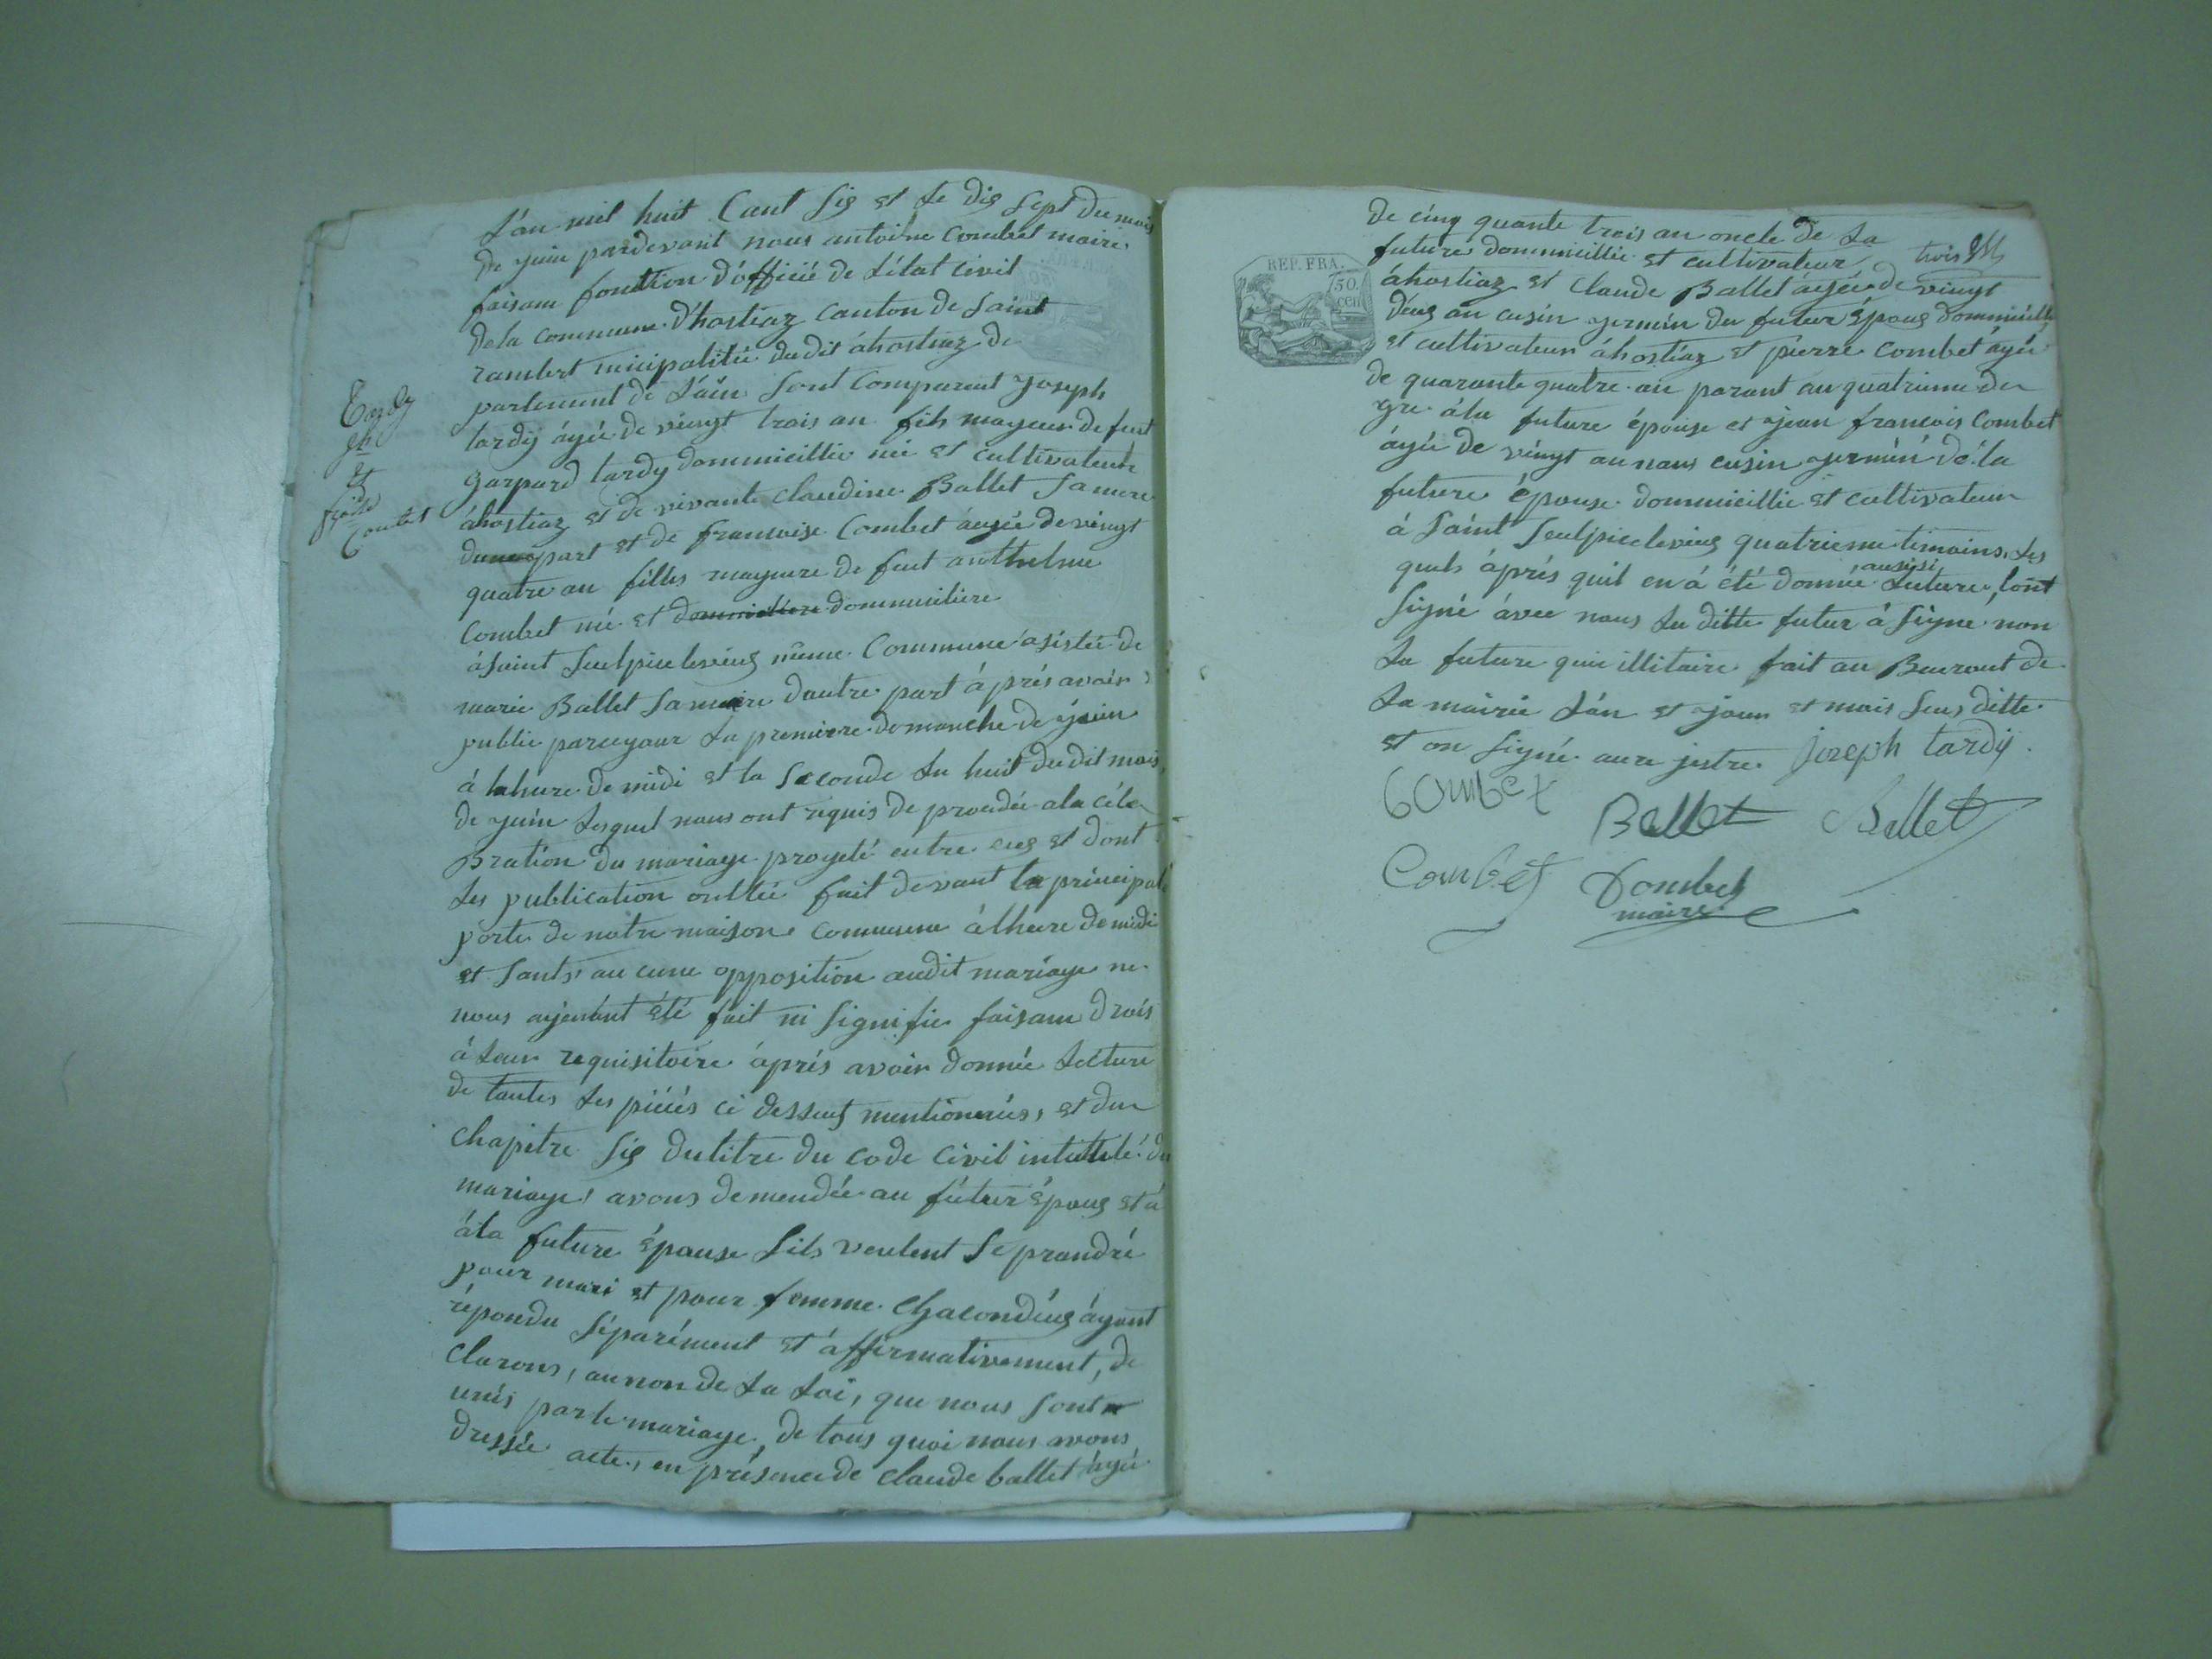 L'an mil huit Cent Sig et Le dig Sept du mois
de juin pardevant nous antoine Combet maire,
faisam fonction d'officié de L'état Civil
de la commune d'hostiaz Canton de Saint
rambert micipalitée dudit áhostiaz De
partement de L'ain Sont Comparent Joseph
tardy áyée de véingt trois an fils mayeur de feut
Gaspard tardy dommicillié née et cultivateur
áhostiaz et de vivante Claudine Ballet Samere
dune part et de francoise Combet áugée de véingt
quatre an filles mayeure de feut anthelme
Combet née et dommiciliere
áSaint Seulpice leviug même Commune asistée de
marie Ballet Samaire dautre part áprés avoir
publie parceyour La premiere domanche de juin
á lahure de midi et la Seconde Lu huit dudit mois,
de juin Lesquel nous ont requis de proudée ala céle
Bration du mariage proyeté entre eug et dont
Les publication ontété fait devant la principale
porte de notre maison Commune álheure de midi
et Sants aucune opposition audit mariage ne
nous ayenánt été fait ni Signifie faisam drois
á Leur requisitoire áprés avoir donnée Lecture
de toutes Les piéces ci dessus mentionnées, et du
Chapitre Sig dutitre du Code Civil intittulé du
mariage, avons demendée au futur épous et á
ála future épouse Sils veulent Se prandre
pour mari et pour femme Chacondéug áyant
répondu Séparément et áffirmativement, de
Clarons, aunon de La Loi, que nous Sont
unis parle mariage, de tous quoi nous avons
dressée acte, en présence de Claude ballet áyée
Tardy
et
Combet
REP. FRA.
50.
cen
trois
de cinq quante trois an oncle de La
future dommicillie et cultivateur
áhostiaz et Claude Ballet áyée de vingt
déug an cusin germin du futur épous dommicillie
et cultivateur áhostiaz et pierre Combet áyée
de quarante quatre an parant au quatrieme de
gre ála future épouse et jean francois Combet
áyée de véingt aunans cusin germin dé la
future épouse dommicillie et cultivateur
á Saint Seulpice leviug quatrieme timoins, Les
quels áprés quil en á été donnée aussi Lecture, Sont
Signé ávec nous Lu ditte futur á Signé non
La future quie illitaire fait au Baurout de
La mairie L'án et jour et mois Sus ditte
et on Signé aure jestre. joseph tardy
Combet
Ballet Ballet
Combet Combet
maire